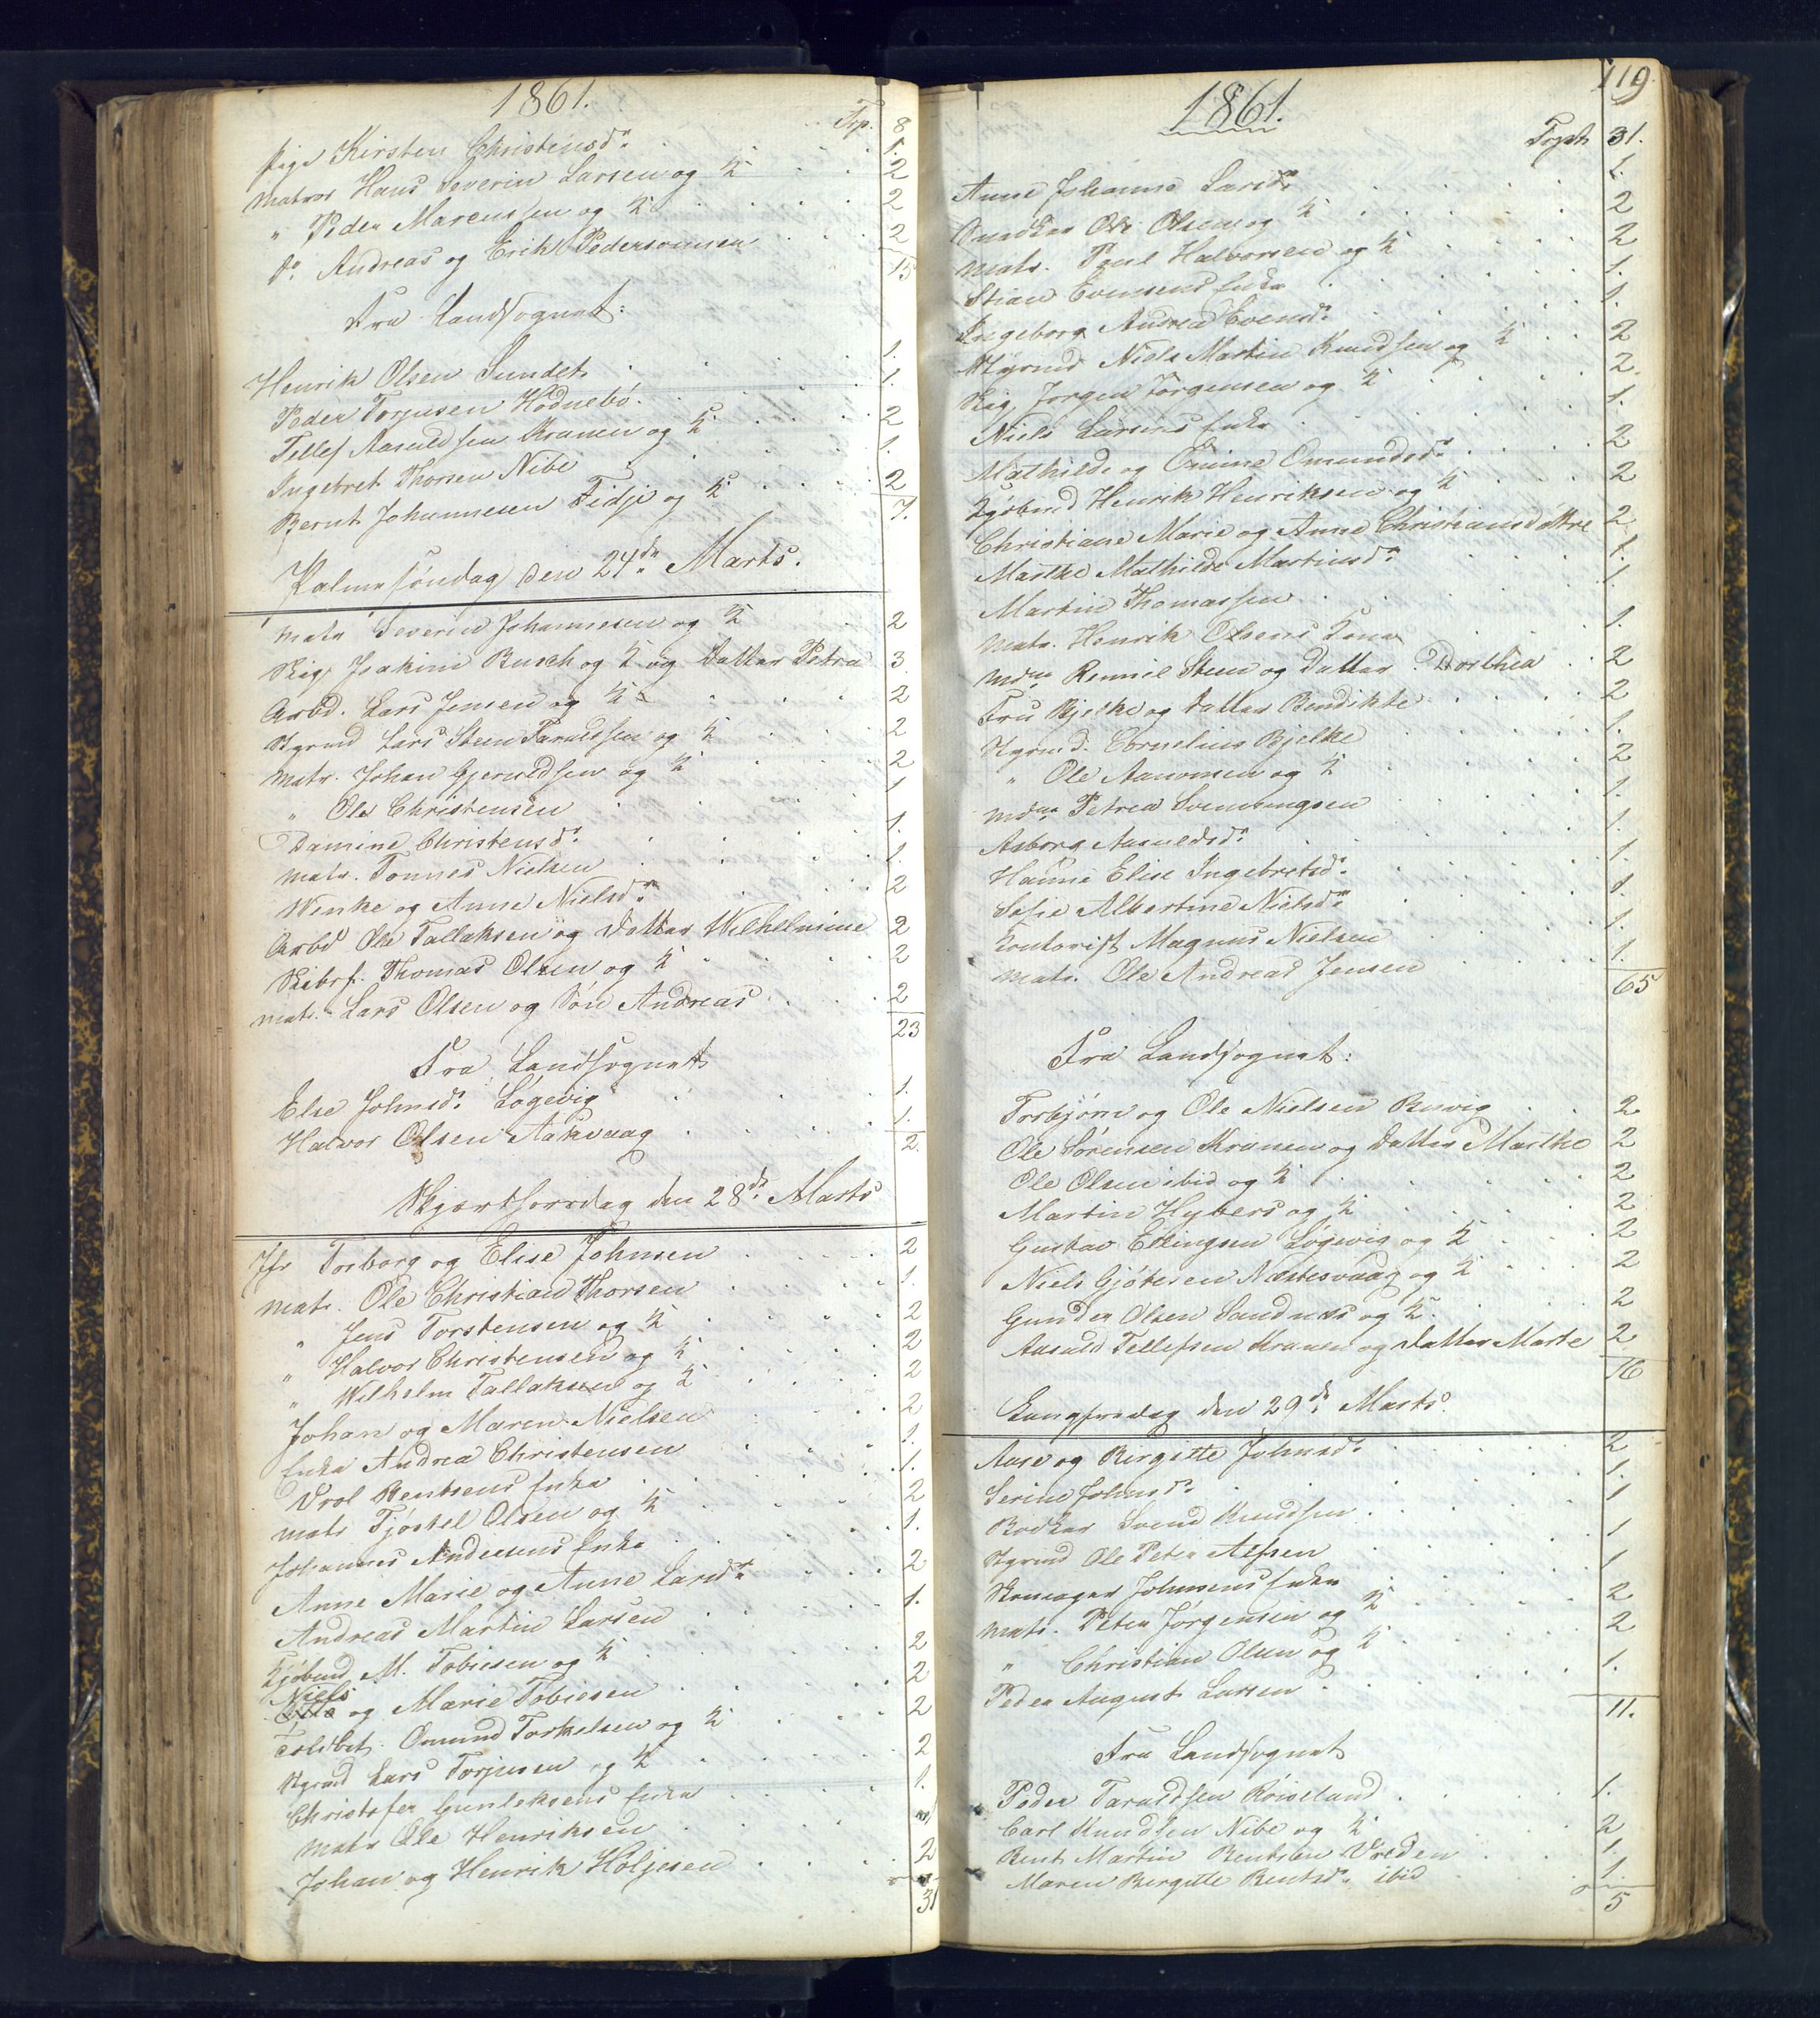 1861.
Trp. 8
Pige Kirsten Christensdr. 1.
Matros Hans Severin Larsen og K. 2
" Peder Marcussen og K. 2
do. Andreas og Erik Pedersønner 2
15
Fra Landsognet:
Henrik Olsen Sundet 1.
Peder Torjusen Hødnebø 1.
Tellef Aasuldsen Kranen og K. 2
Ingebret Thorsen Nibe 1.
Bernt Johannesen Tidje og K. 2
7.
Palmesøndag den 24de Marts.
Matr Severin Johannesen og K 2
Skig. Joakim Busch og K og Datter Petra 3
Arbd. Lars Jensen og K 2
Styrmd Lars Steen Taraldsen og K 2
Matr. Johan Gjeruldsen og K 2
" Ole Christensen 1
Damine Christensdr. 1.
Matr. Tønnes Nielsen 1.
Wenke og Anne Nielsdr. 2
Arbd Ole Tallaksen og Datter Wilhelmine 2
Skibsf. Thomas Olsen og K 2
Matr. Lars Olsen og Søn Andreas 2
23
Fra Landsognet
Else Johnsdr. Løgevig 1.
Halvor Olsen Aakvaag 1.
2.
Skjærthorsdag den 28de Marts
Jfr Torborg og Elise Johnsen 2
Matr. Ole Christian Thorsen 1.
" Jens Torstensen og K 2
" Halvor Christensen og K 2
" Wilhelm Tallaksen og K 2
Johan og Maren Nielsen 2
Enke Andrea Christensen 1.
Vrol Bentsens Enke 1.
Matr Tjøstel Olsen og K 2
Johannes Andersens Enke 1.
Anne Marie og Anne Larsdr 2
Andreas Martin Larsen 1.
Kjøbmd M. Tobiesen og K 2
Niels
og Marie Tobiesen 2
Toldbet. Omund Torkelsen og K 2
Styrmd Lars Torjusen og K 2
Christofer Gunleksens Enke 1.
Matr Ole Henriksen
Johan og Henrik Holjesen 2
31
119
1861.
Trpt. 31.
Anne Johanne Larsdr 1.
Snedker Ole Olsen og K 2
Matr. Poul Halvorsen og K 2
Stian Evensens Enke 1.
Ingeborg Andrea Evensdr. 1.
Styrmd Niels Martin Knudsen og K 2
Skig. Jørgen Jørgensen og K 2.
Niels Larsens Enke 1.
Mathilde og Omine Omundsdr. 2
Kjøbmd Henrik Henriksen og K 2
Christiane Marie og Anne Christiansdøttre 2.
Marthe Mathilde Martinsdr. 1.
Martin Thomassen 1.
Matr. Henrik Olsens Kone 1.
Mdme Rennie Steen og Datter Dorthea 2
Fru Bjelke og Datter Bendikte 2
Styrmd. Cornelius Bjelke 1.
" Ole Aanonsen og K 2
Mdme Petrea Svenningsen 1.
Asborg Aasuldsdr. 1.
Hanne Elise Ingebretsdr. 1
Sofie Albertine Nielsdr. 1.
Contorist Magnus Nielsen 1.
Matr. Ole Andreas Jensen 1.
65
Fra Landsognet:
Torbjørn og Ole Nielsen Buvig 2
Ole Sørensen Kranen og Datter Marthe 2
Ole Olsen ibid og K 2
Martin Hybers og K 2
Gustav Ellingsen Løgevig og K 2
Niels Gjøtesen Næstesvaag og K 2
Gunder Olsen Sandnæs og K 2
Aasuld Tellefsen Kranen og Datter Marte 2
16
Langfredag den 29de Marts.
Aase og Birgitte Johnsdr. 2
Serine Johnsdr. 1.
Bødker Svend Knudsen 1
Styrmd Ole Peter Alfsen 1
Skomager Johnsens Enke 1
Matr. Peter Jørgensen og K 2
" Christian Olsen og K 2
Peder August Larsen 1.
11.
Fra Landsognet
Peder Taraldsen Røiseland 1.
Carl Knudsen Nibe og K 2
Bent Martin Bentsen Vreden 1.
Maren Birgitte Bentsdr. ibid 1.
5